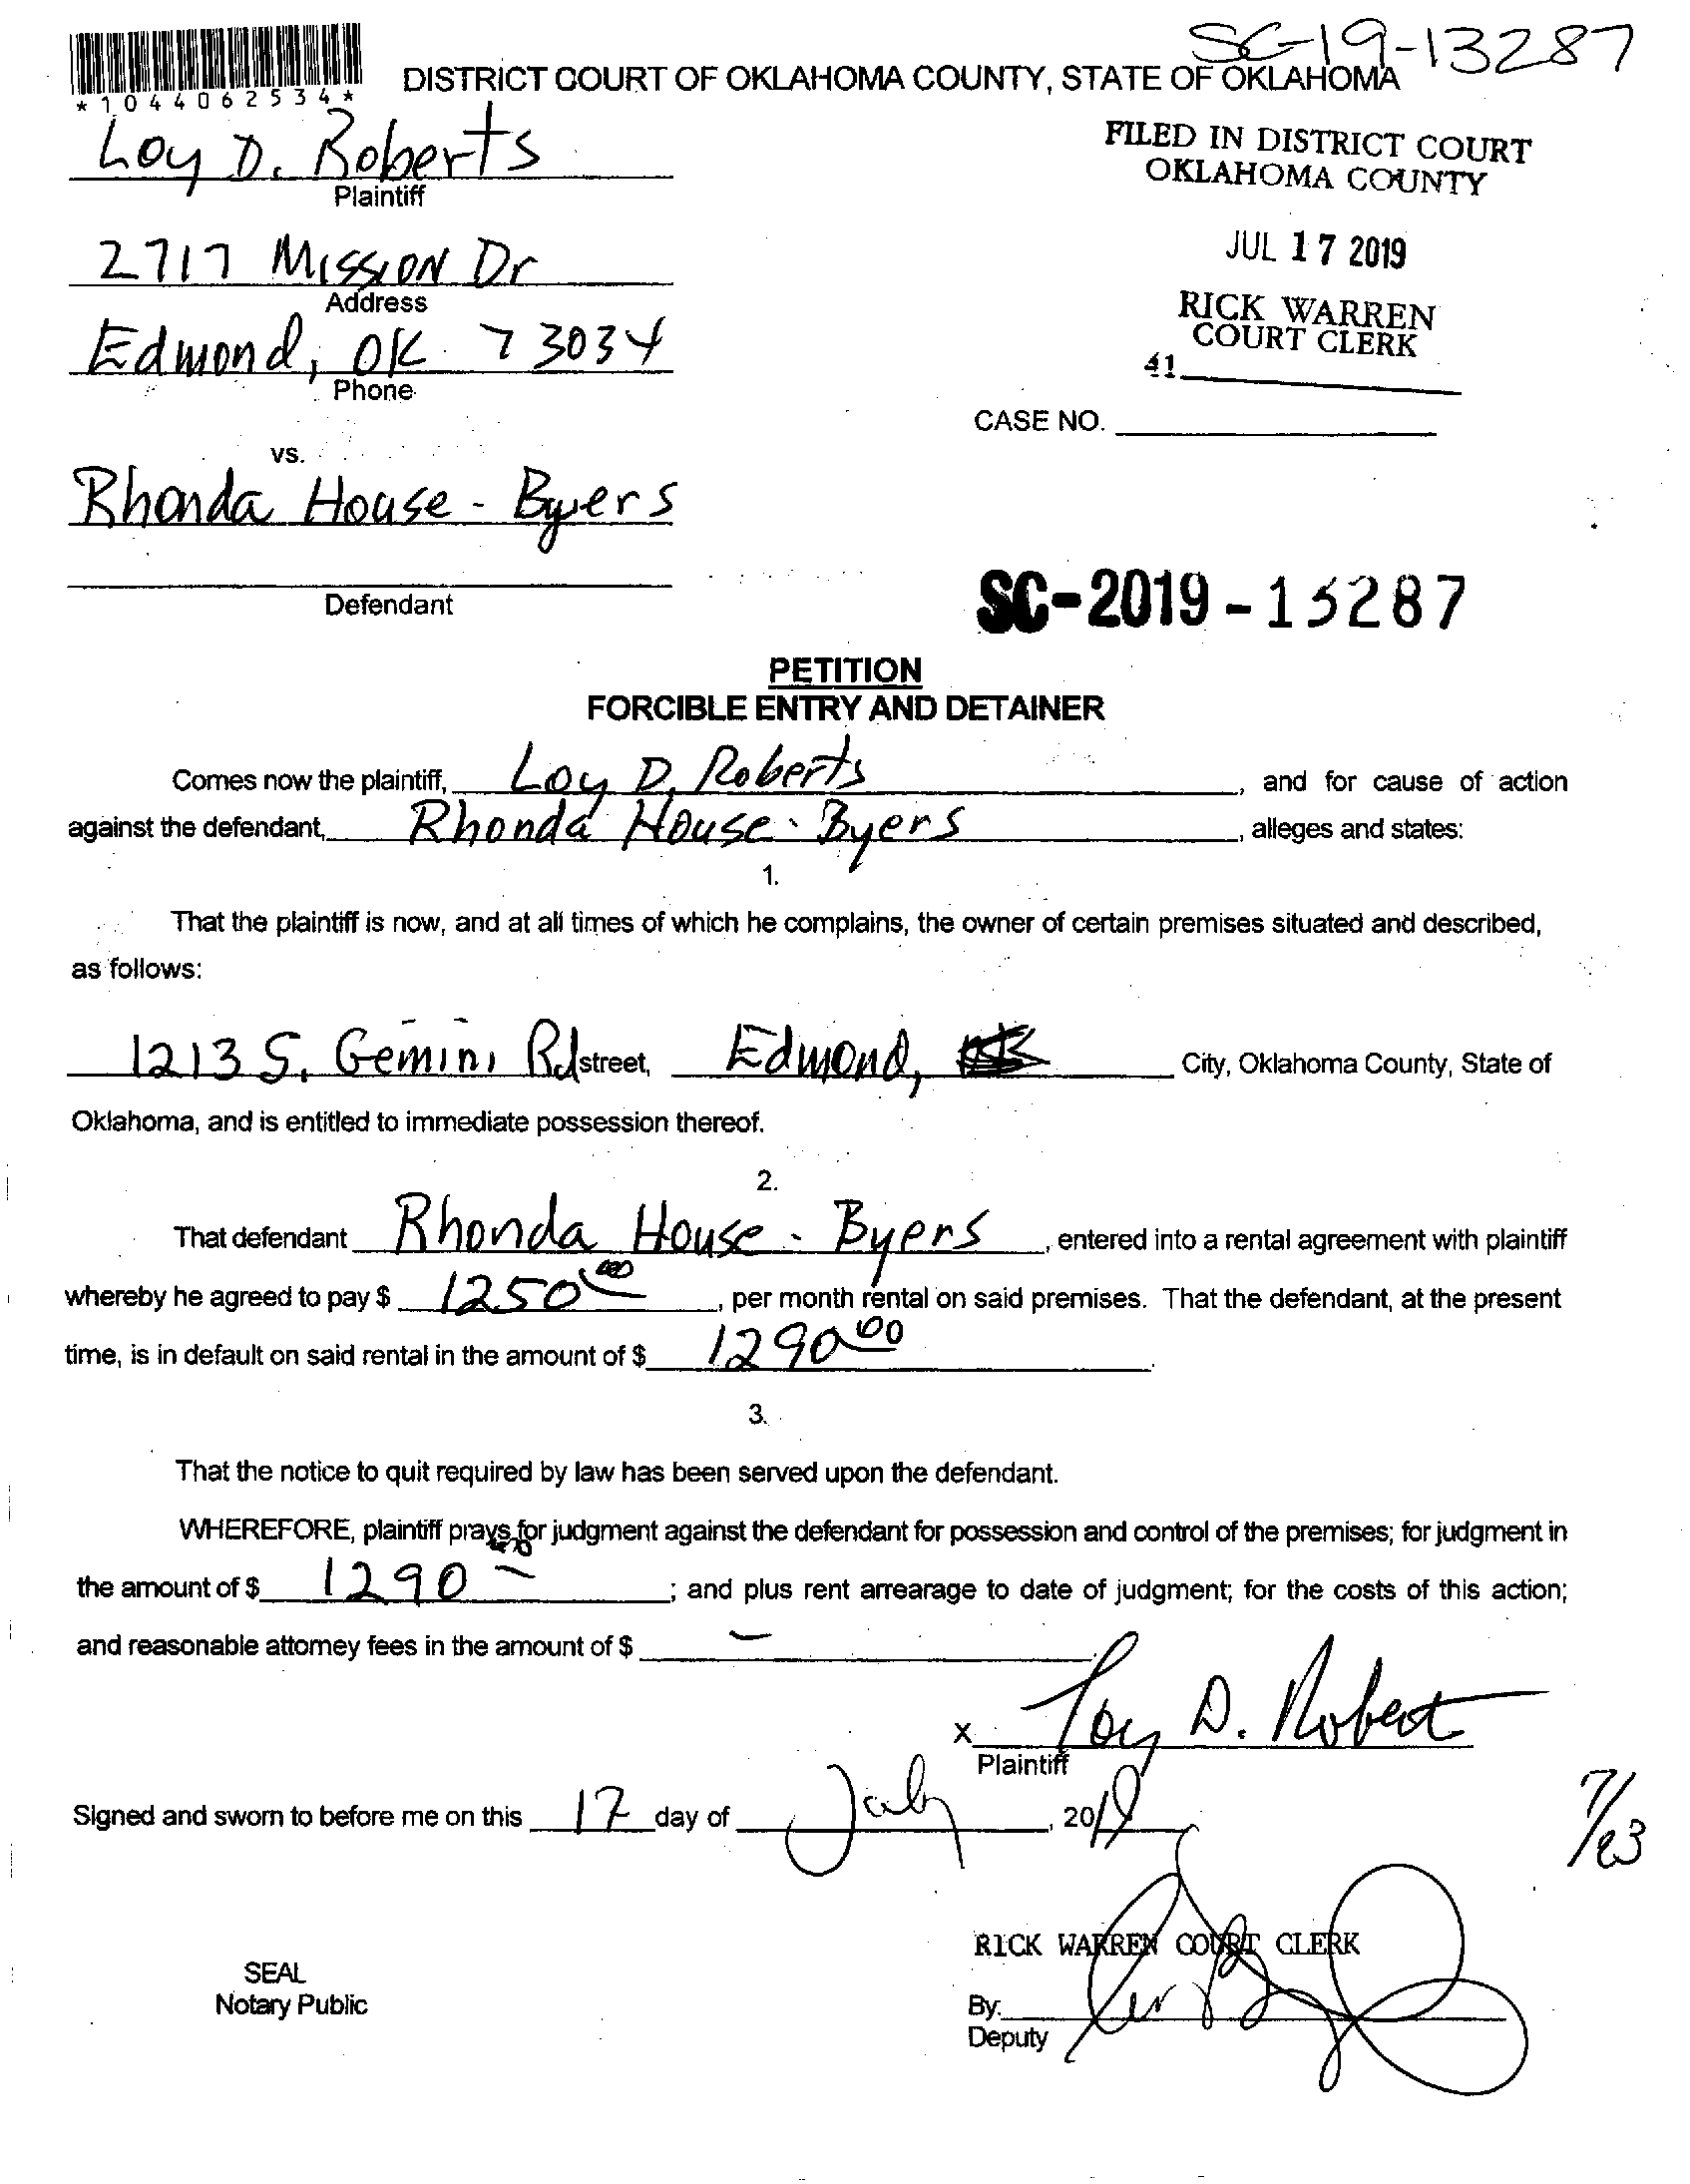 SC-19-13287
*1044062534*
DISTRICT COURT OF OKLAHOMA COUNTY, STATE OF OKLAHOMA
Loy D. Roberts
Plaintiff
FILED IN DISTRICT COURT
OKLAHOMA COUNTY
2717 Mission Dr
Address
JUL 17 2019
Edmond, OK 73034
Phone
RICK WARREN
COURT CLERK
41
CASE NO.
vs.
Rhonda House - Byers
Defendant
SC-2019-13287
PETITION
FORCIBLE ENTRY AND DETAINER
Comes now the plaintiff, Loy D. Roberts, and for cause of action
against the defendant, Rhonda House - Byers, alleges and states:
1.
That the plaintiff is now, and at all times of which he complains, the owner of certain premises situated and described,
as follows:
1213 S. Gemini Rd street, Edmond, City, Oklahoma County, State of
Oklahoma, and is entitled to immediate possession thereof.
2.
That defendant Rhonda House - Byers, entered into a rental agreement with plaintiff
whereby he agreed to pay $ 1250 00, per month rental on said premises. That the defendant, at the present
time, is in default on said rental in the amount of $ 1290 00.
3.
That the notice to quit required by law has been served upon the defendant.
WHEREFORE, plaintiff prays for judgment against the defendant for possession and control of the premises; for judgment in
the amount of $ 1290 -; and plus rent arrearage to date of judgment; for the costs of this action;
and reasonable attorney fees in the amount of $ -
x Loy D. Robert
Plaintiff
Signed and sworn to before me on this 17 day of July, 2019
7/23
RICK WARREN COURT CLERK
SEAL
Notary Public
By:
Deputy